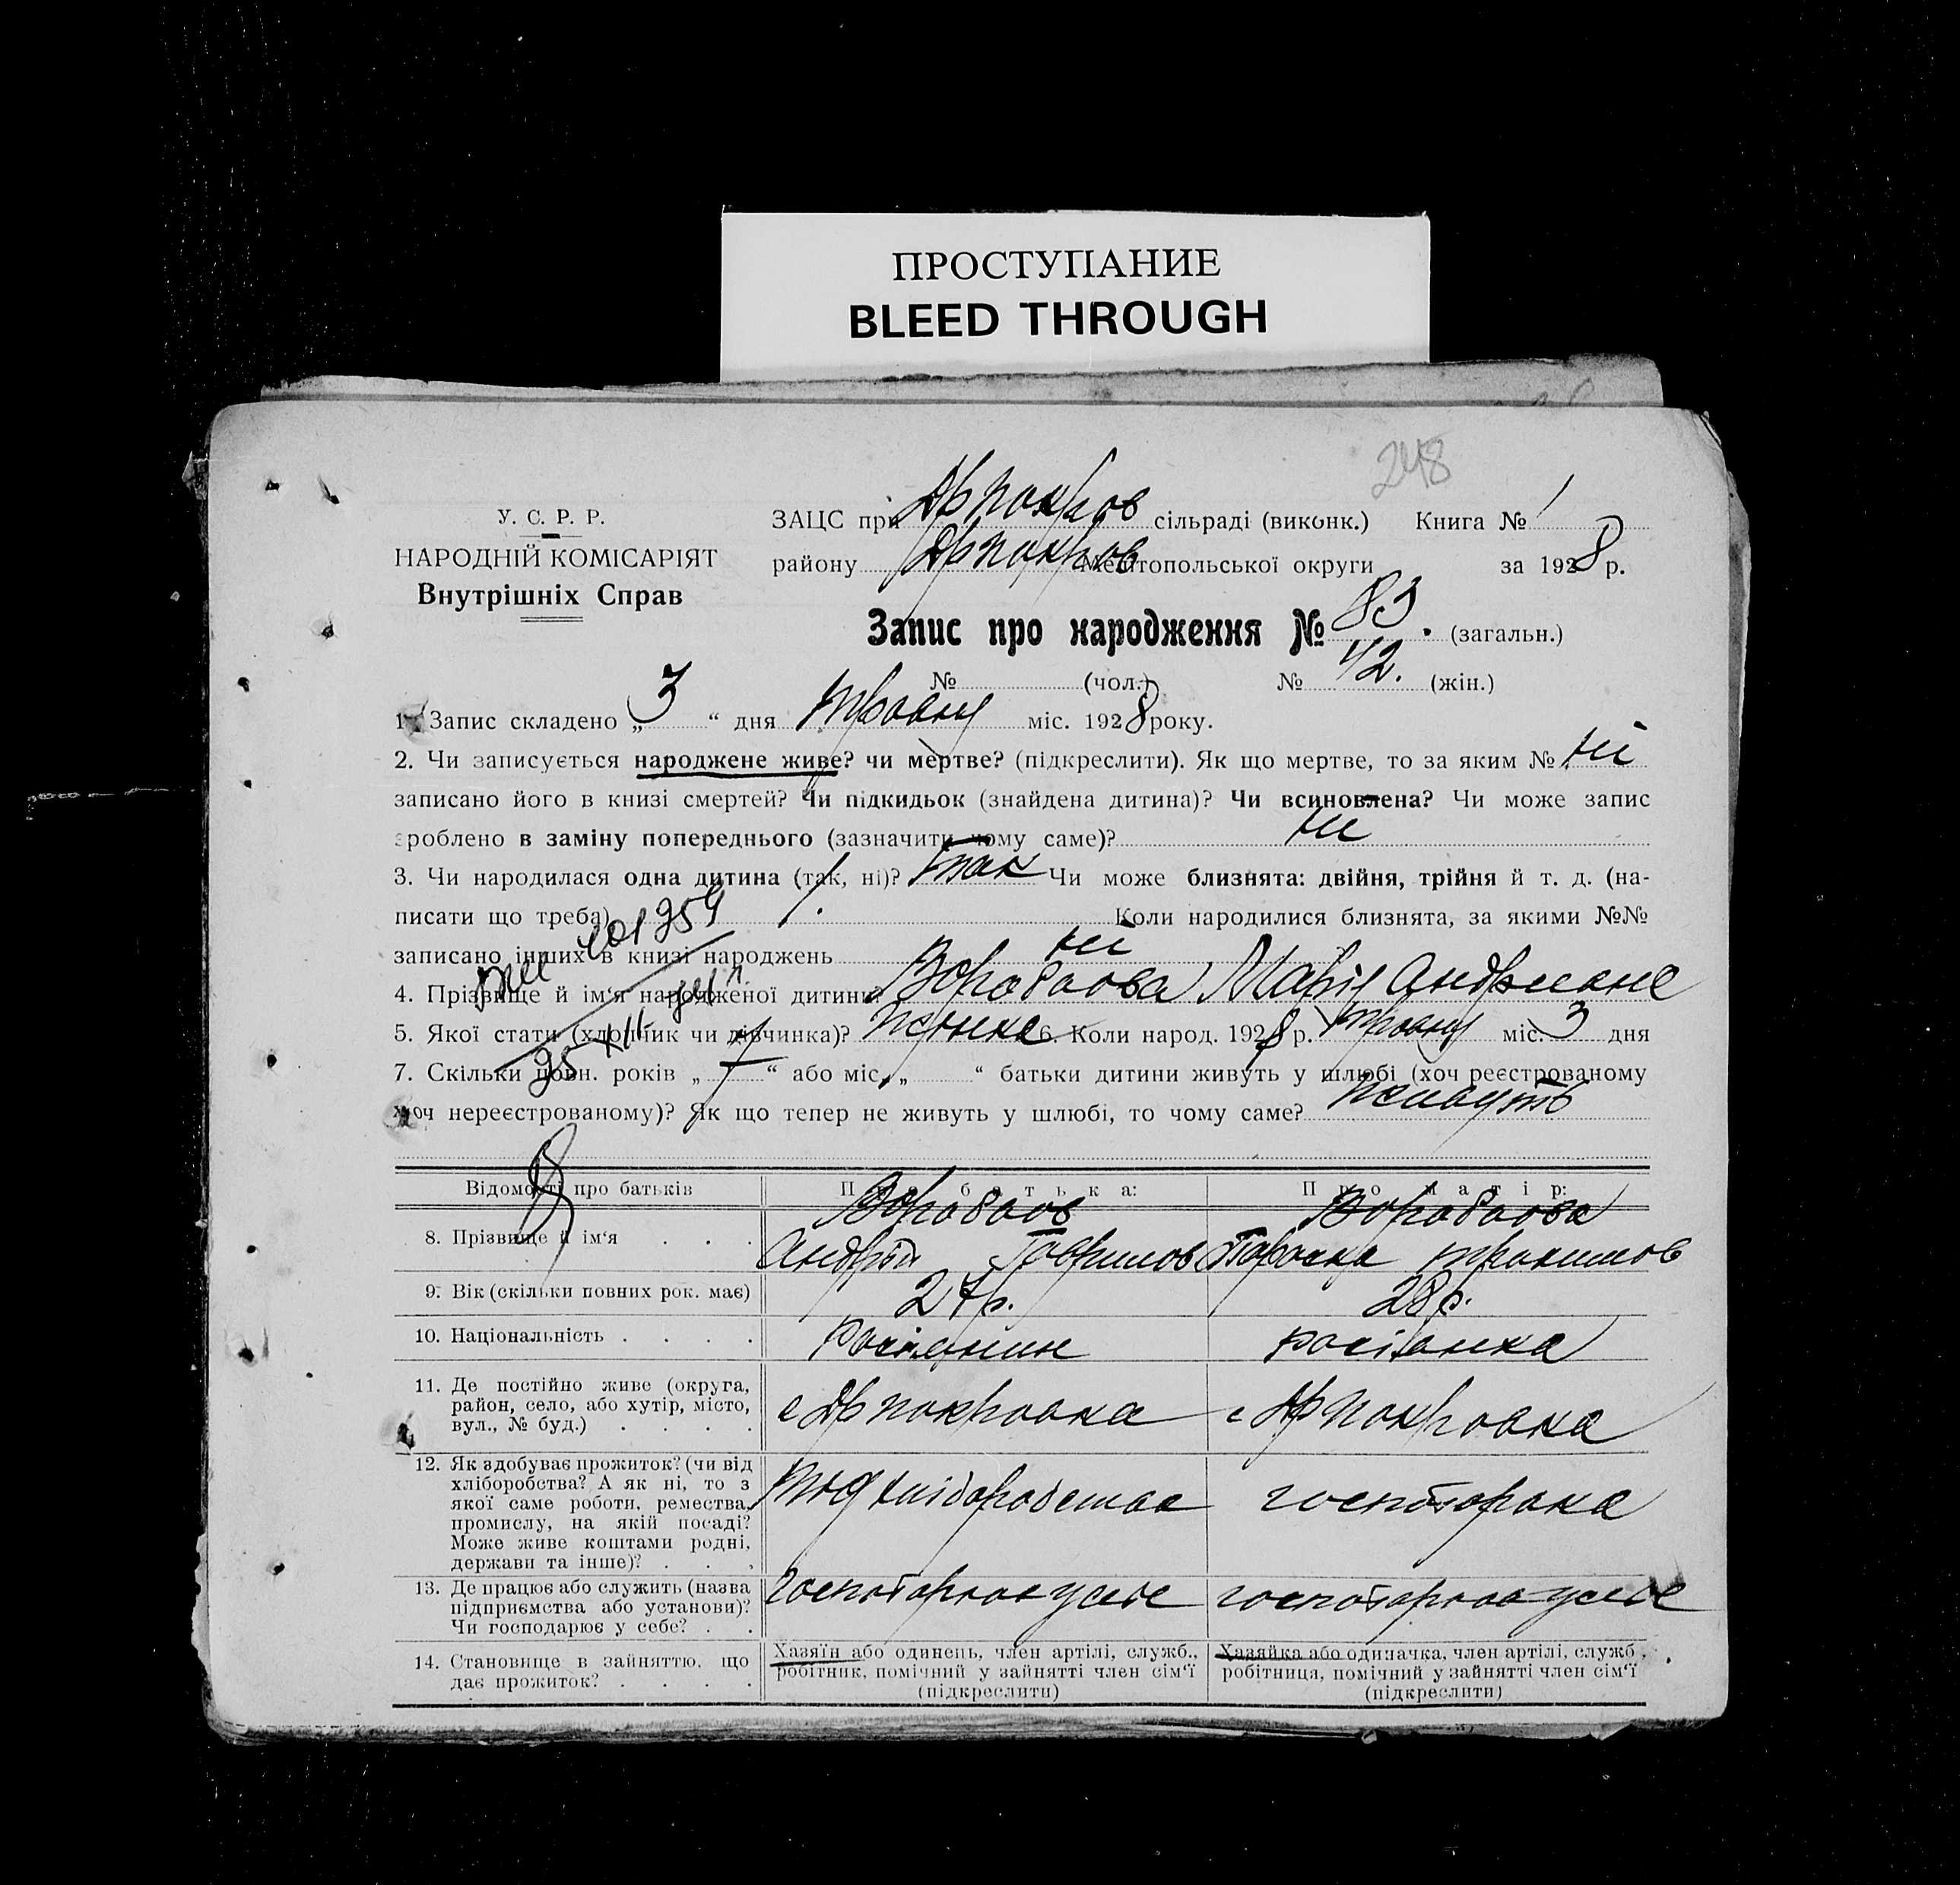 ПРОСТУПАНИЕ
BLEED THROUGH
248
У. С. Р. Р.
НАРОДНІЙ КОМІСАРІЯТ
Внутрішніх Справ
ЗАЦС при Др покров сільраді (виконк.) Книга № 1
району Др покров Мелітопольської округи за 1928 р.
Запис про народження № 83. (загальн.)
№ (чол.) № 42. (жін.)
1. Запис складено „ 3 “ дня травня міс. 1928 року.
2. Чи записується народжене живе? чи мертве? (підкреслити). Як що мертве, то за яким № ні
записано його в книзі смертей? Чи підкидьок (знайдена дитина)? Чи всиновлена? Чи може запис
зроблено в заміну попереднього (зазначити чому саме)? ні
3. Чи народилася одна дитина (так, ні)? так Чи може близнята: двійня, трійня й т. д. (на-
писати що треба) 1. Коли народилися близнята, за якими №№
записано інших в книзі народжень ні
4. Прізвище й ім‘я народженої дитини: Воробйова Марія Андриевне
5. Якої стати (хлопчик чи дівчинка)? 6. Коли народ. 1928 р. травня міс. 3 дня
7. Скільки повн. років „ 7 “ або міс. „ “ батьки дитини живуть у шлюбі (хоч реєстрованому
хоч нереєстрованому)? Як що тепер не живуть у шлюбі, то чому саме?
Відомості про батьків Про батька: Про матір:
8. Прізвище й ім‘я . . . Воробйов Андрій Гаврилов Воробйова
9. Вік (скільки повних рок. має) 27 р. 28 р.
10. Національність . . . . росіянин росіянка
11. Де постійно живе (округа, район, село, або хутір, місто, вул., № буд.) . . . . с Др покровка с Др Покровка
12. Як здобуває прожиток? (чи від хліборобства? А як ні, то з якої саме роботи, ремества, промислу, на якій посаді? Може живе коштами родні, держави та інше)? . . .
13. Де працює або служить (назва підприємства або установи)? Чи господарює у себе? . .
14. Становище в зайняттю, що дає прожиток? . . . .
Хазяїн або одинець, член артілі, служб., робітник, помічний у зайнятті член сім‘ї (підкреслити)
Хазяйка або одиначка, член артілі, служб., робітниця, помічний у зайнятті член сім‘ї (підкреслити)